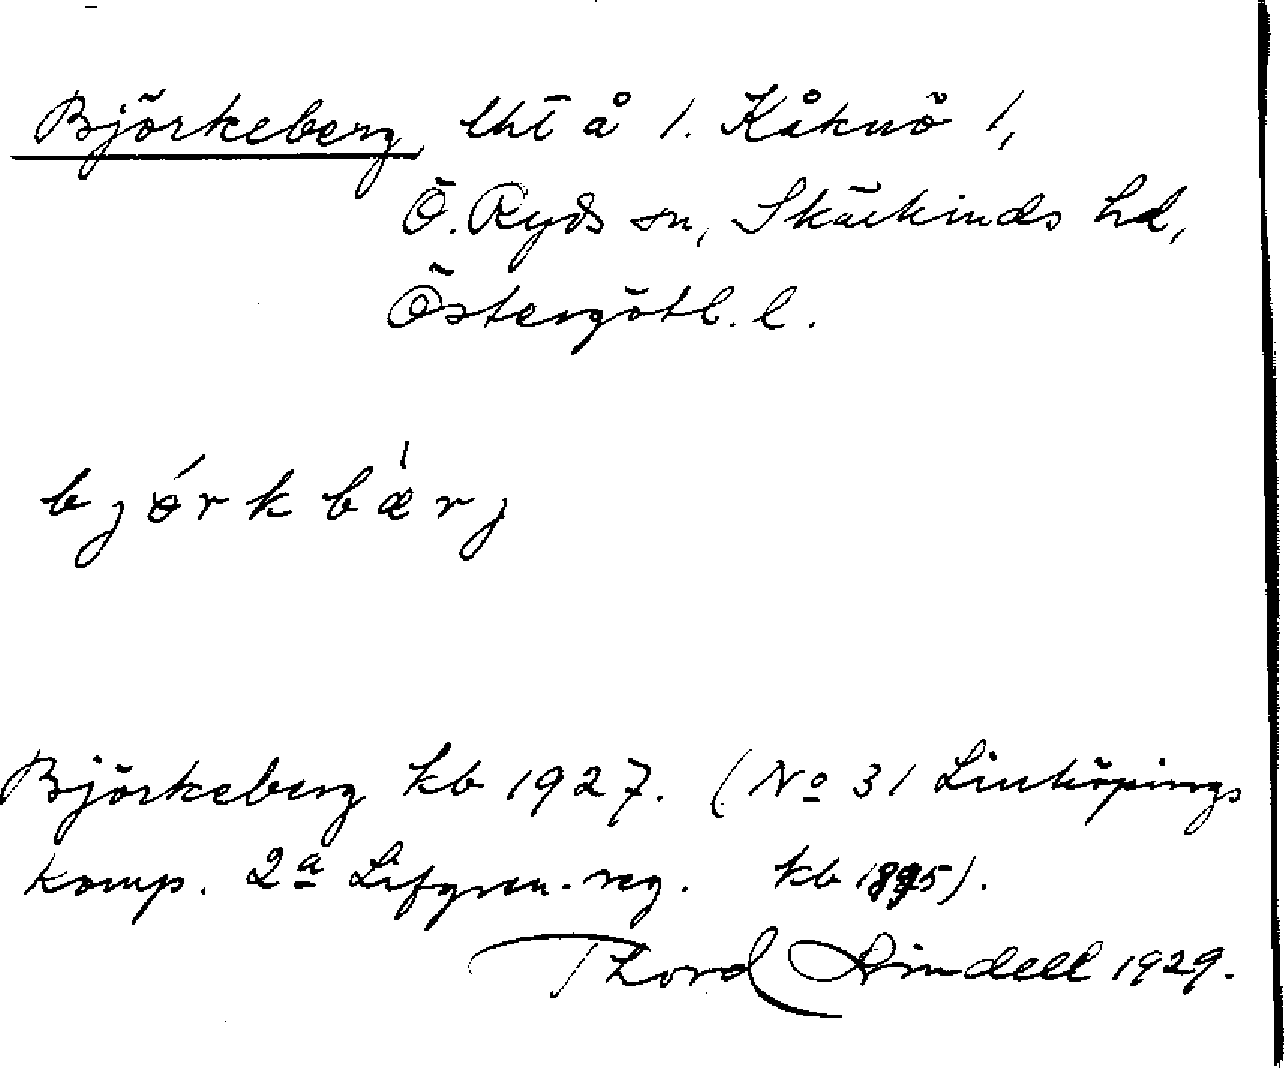 Björkeberg, lht å 1. Kåknö 1,
Ö. Ryds sn, Skärkinds hd,
Östergötl. l.
bjǿrkbæ̀rj
Björkeberg kb 1927. (No 31 Linköpings
Komp. 2a Lifgren. reg. kb 1895).
Thord Lindell 1929.